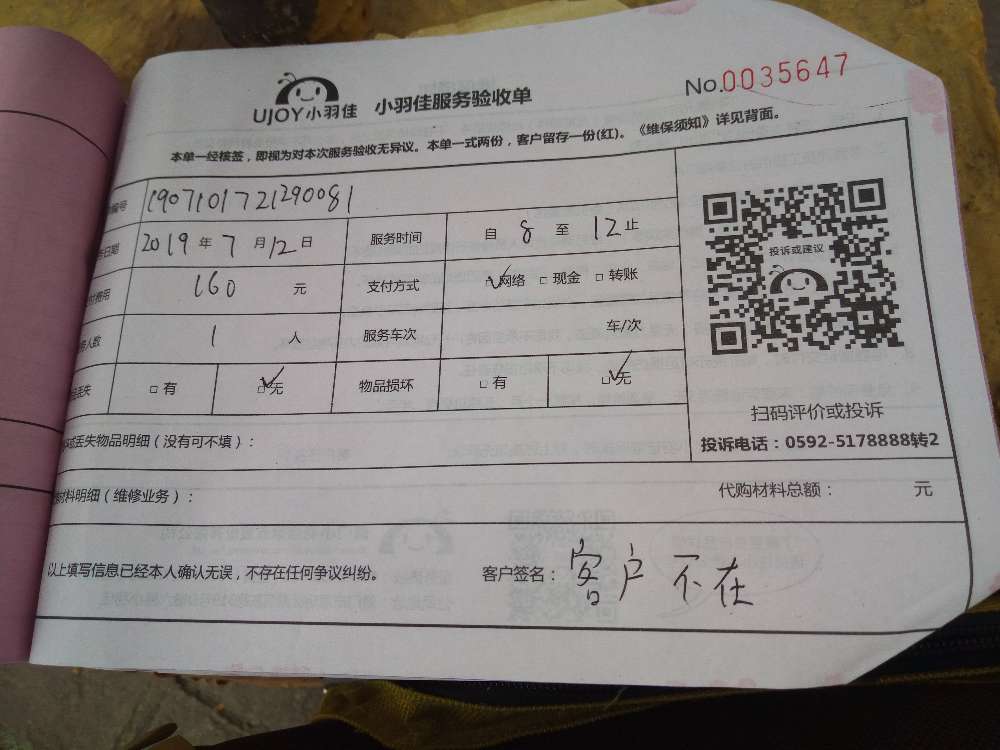 UJOY小羽佳 小羽佳服务验收单 No.0035647
本单一经核签，即视为对本次服务验收无异议。本单一式两份，客户留存一份(红)。《维保须知》详见背面。
编号 1907101721290081
日期 2019年7月12日 服务时间 自8至12止
费用 160元 支付方式 □网络 □现金 □转账
人数 1人 服务车次 车/次
丢失 □有 □无 物品损坏 □有 □无
投诉或建议
扫码评价或投诉
投诉电话：0592-5178888转2
丢失物品明细（没有可不填）：
材料明细（维修业务）： 代购材料总额： 元
以上填写信息已经本人确认无误，不存在任何争议纠纷。 客户签名：客户不在